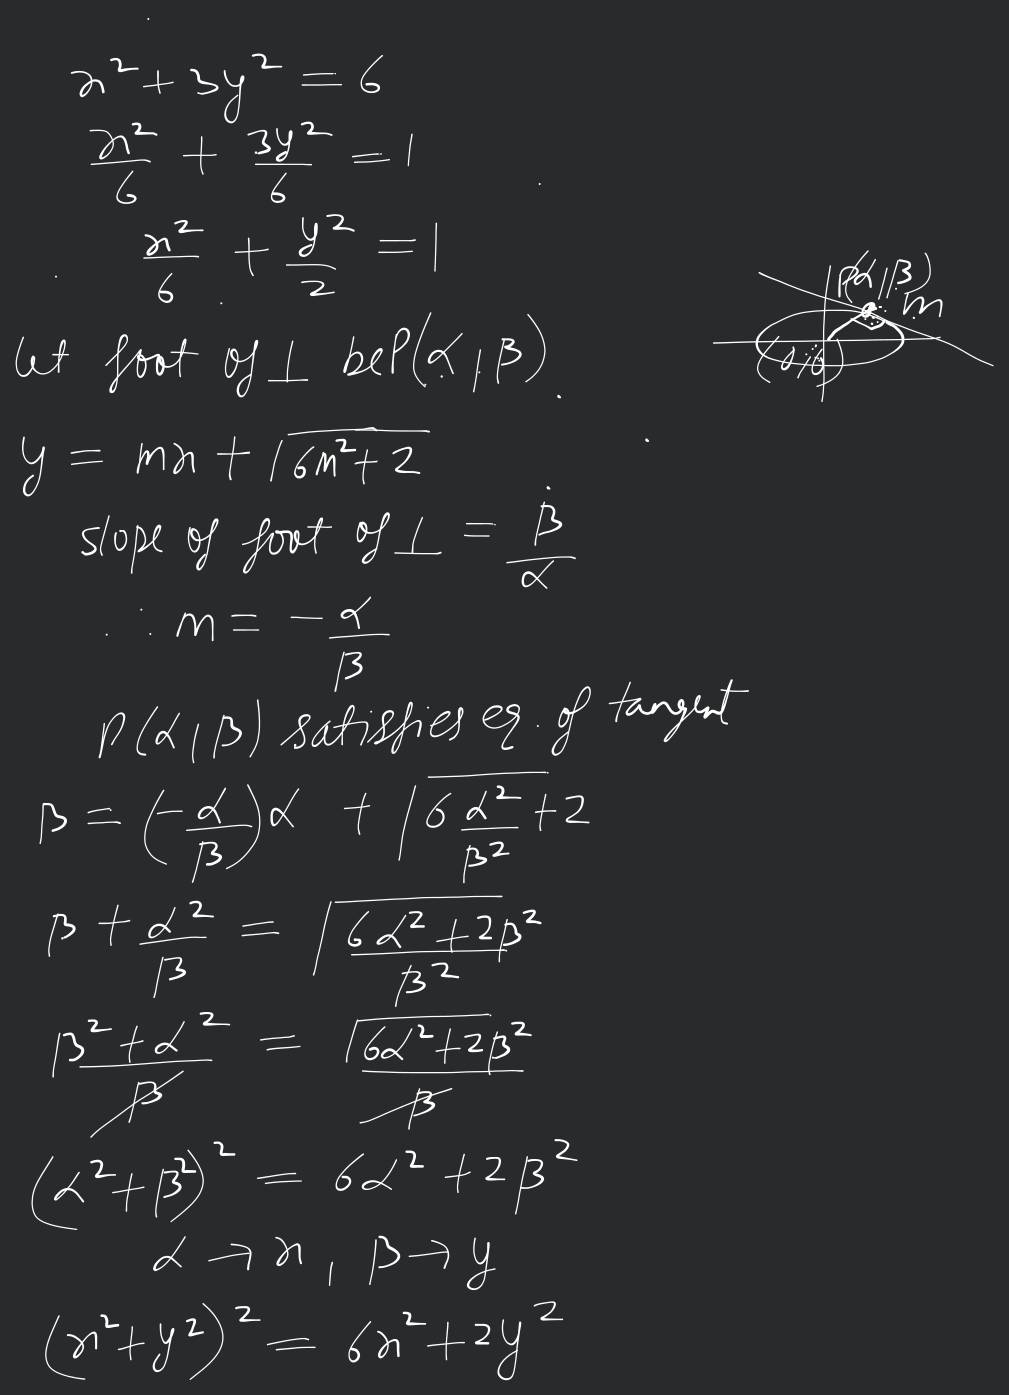 x² + 3y² = 6
x²/6 + 3y²/6 = 1
x²/6 + y²/2 = 1
P(α, β)
m
(0,0)
let foot of ⊥ be P(α, β).
y = mx + √(6m² + 2)
slope of foot of ⊥ = β/α
∴ m = -α/β
P(α, β) satisfies eq. of tangent
β = (-α/β)α + √(6α²/β² + 2)
β + α²/β = √((6α² + 2β²)/β²)
(β² + α²)/β = √(6α² + 2β²)/β
(α² + β²)² = 6α² + 2β²
α → x, β → y
(x² + y²)² = 6x² + 2y²